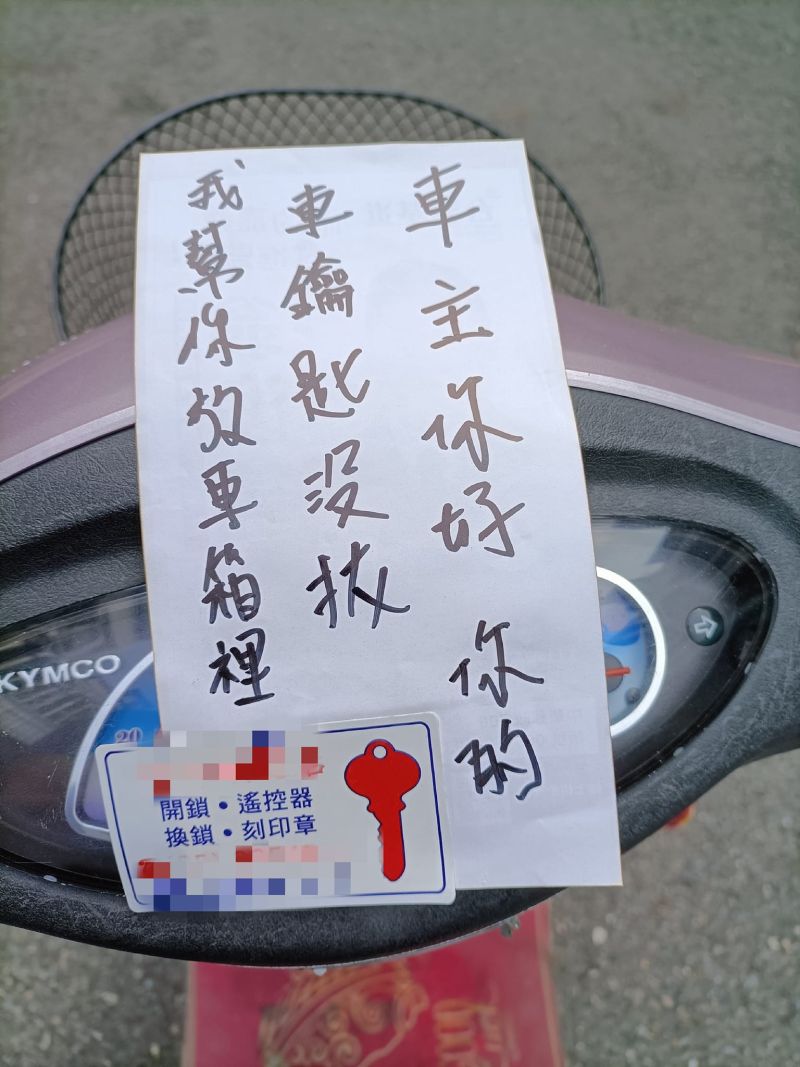 車主你好 你的
車鑰匙沒拔
我幫你放車箱裡
KYMCO
20
開鎖・遙控器
換鎖・刻印章